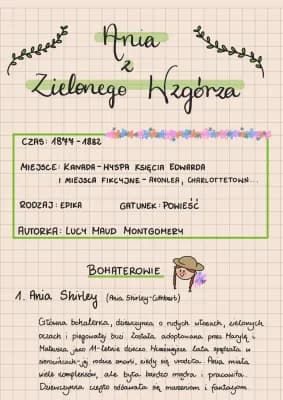 Ania
z
Zielonego Wzgórza
CZAS: 1877-1882
MIEJSCE: KANADA-WYSPA KSIĘCIA EDWARDA
I MIEJSCA FIKCYJNE - AVONLEA, CHARLOTTETOWN...
RODZAJ: EPIKA GATUNEK: POWIEŚĆ
AUTORKA: LUCY MAUD MONTGOMERY
BOHATEROWIE
1. Ania Shirley (Ania Shirley-Cuthbert)
Główna bohaterka, dziewczynka o rudych włosach, zielonych
oczach i piegowatej buzi została adoptowana przez Marylę i
Mateusza jako 11-letnie dziecko. Wcześniejsze lata spędzała w
sierocińcach-jej rodzice zmarli, kiedy się urodziła. Ania miała
wiele kompleksów, ale była bardzo mądra i pracowita.
Dziewczynka często oddawała się marzeniom i fantazjom